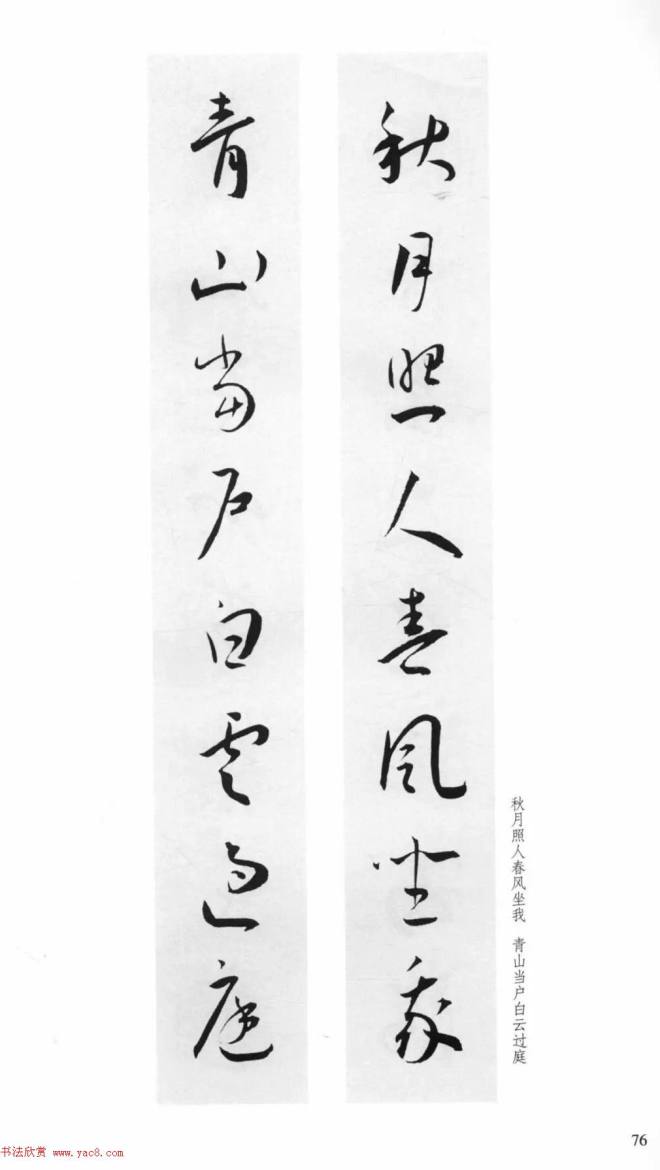 秋月照人春风坐我
青山当户白云过庭
秋月照人春风坐我 青山当户白云过庭
76
书法欣赏 www.yac8.com